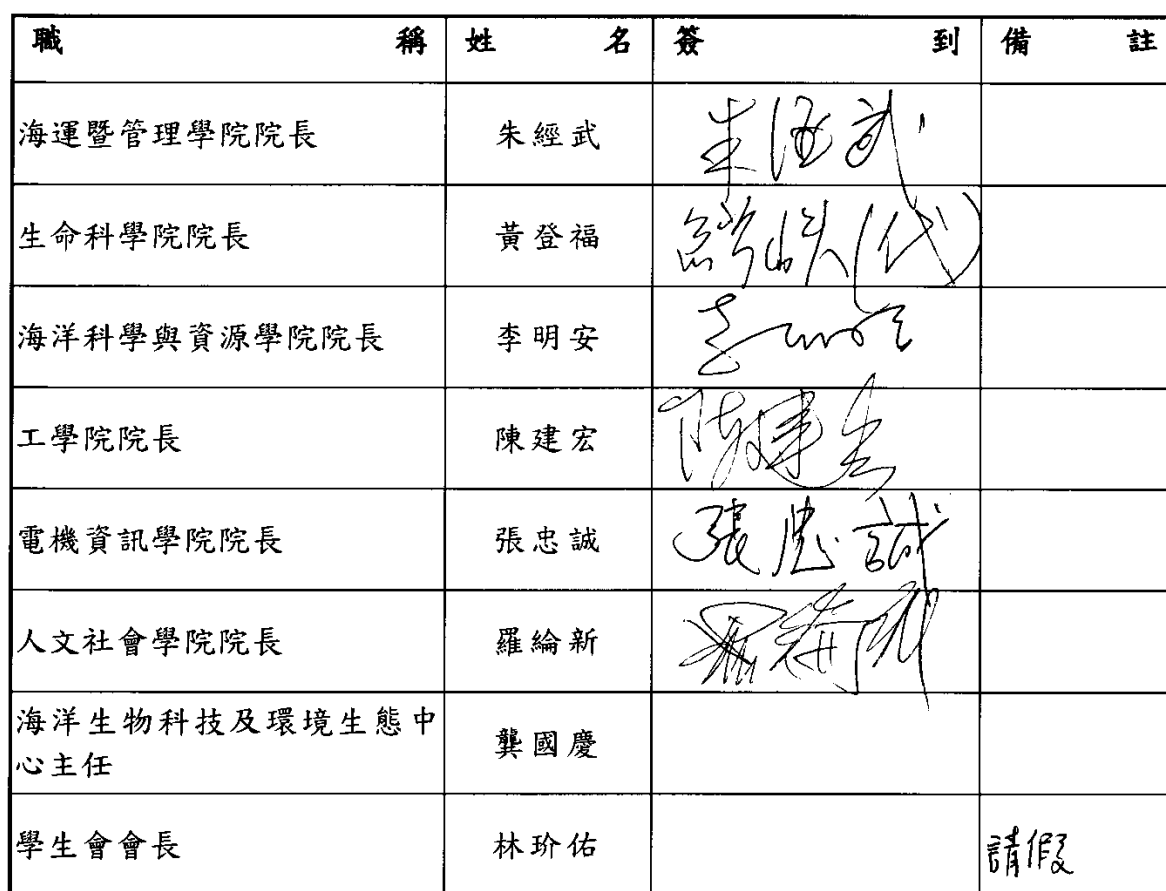 職稱 姓名 簽到 備註
海運暨管理學院院長 朱經武 朱經武
生命科學院院長 黃登福 (代)
海洋科學與資源學院院長 李明安 李明安
工學院院長 陳建宏 陳建宏
電機資訊學院院長 張忠誠 張忠誠
人文社會學院院長 羅綸新
海洋生物科技及環境生態中
心主任 龔國慶
學生會會長 林玠佑 請假